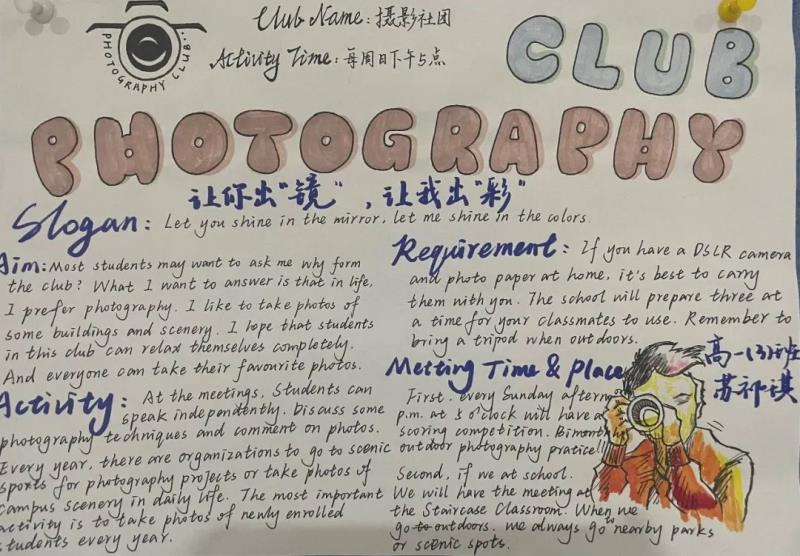 PHOTOGRAPHY CLUB
Club Name: 摄影社团
Activity Time: 每周日下午5点
CLUB
PHOTOGRAPHY
让你出"镜"，让我出"彩"
Slogan: Let you shine in the mirror, let me shine in the colors.
Aim: Most students may want to ask me why form
the club? What I want to answer is that in life,
I prefer photography. I like to take photos of
some buildings and scenery. I hope that students
in this club can relax themselves completely.
And everyone can take their favourite photos.
Activity: At the meetings, Students can
speak independently. Discuss some
photography techniques and comment on photos.
Every year, there are organizations to go to scenic
spots for photography projects or take photos of
campus scenery in daily life. The most important
activity is to take photos of newly enrolled
students every year.
Requirement: If you have a DSLR camera
and photo paper at home, it's best to carry
them with you. The school will prepare three at
a time for your classmates to use. Remember to
bring a tripod when outdoors.
Metting Time & Place
First. every Sunday afternoon
p.m. at 5 o'clock will have a
scoring competition. Bimonthly
outdoor photography pratice!!
Second, if we at school.
We will have the meeting at
the Staircase Classroom. When we
go to outdoors. we always go to nearby parks
or scenic spots.
高一(3)班
苏祁祺